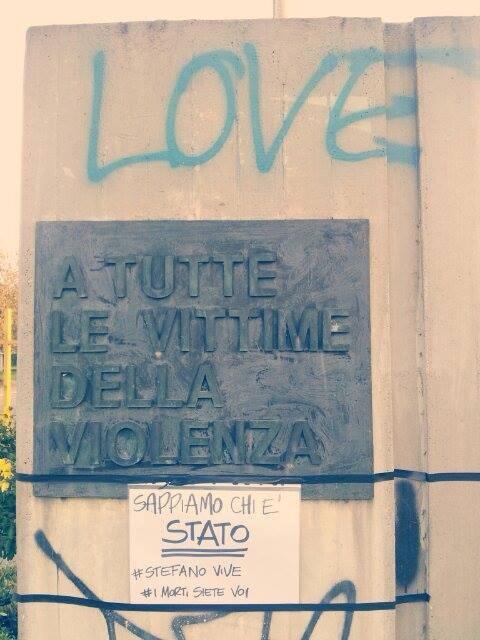 LOVE
A TUTTE
LE VITTIME
DELLA
VIOLENZA
SAPPIAMO CHI E'
STATO
#STEFANO VIVE
#I MORTI SIETE VOI